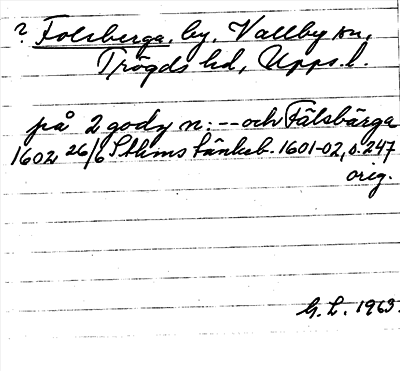 ? Folsberga, by, Vallby sn,
Trögds hd, Upps. l.
på 2 godz n: -- och Fålsbärga
1602 26/6 Sthms tänkeb. 1601-02, s. 247
orig.
G. L. 1963.